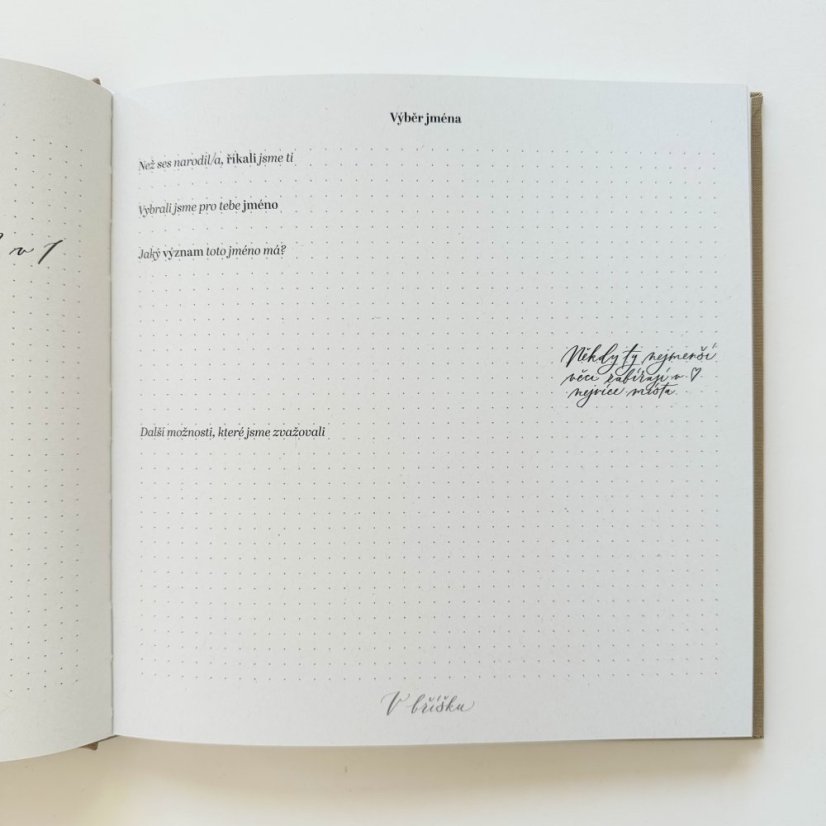 Výběr jména
Než ses narodil/a, říkali jsme ti
Vybrali jsme pro tebe jméno
Jaký význam toto jméno má?
Někdy ty nejmenší
věci zabírají v ♡
nejvíce místa
Další možnosti, které jsme zvažovali
V bříšku